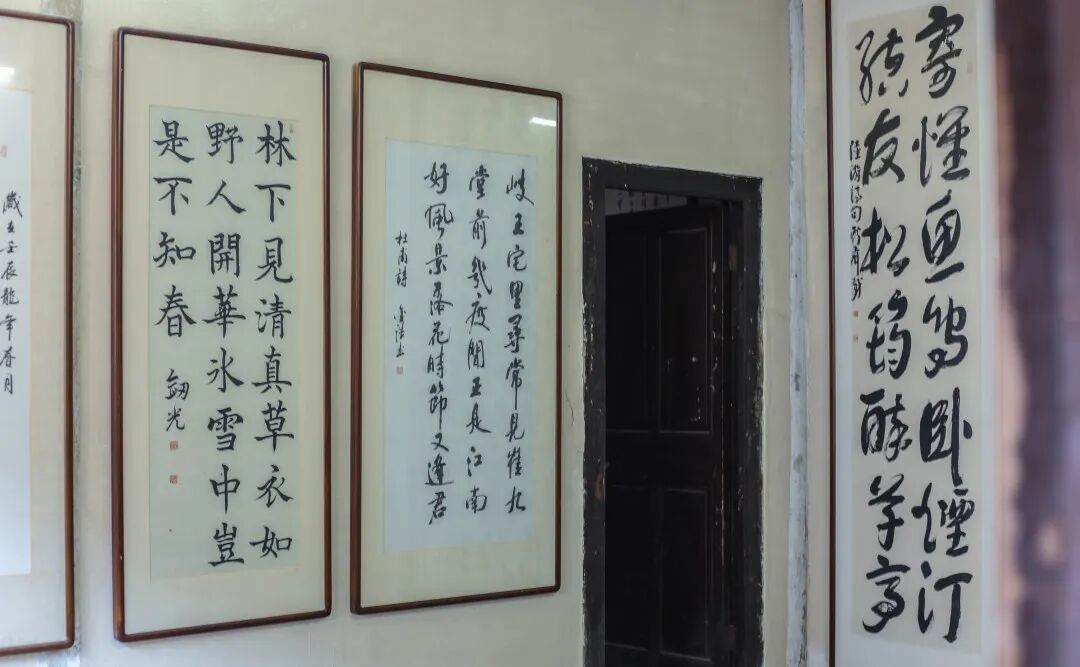 寄懷魚鳥卧煙汀
結友松筠醉草亭
陸游詩句
岐王宅里尋常見崔九
堂前幾度聞正是江南
好風景落花時節又逢君
杜甫詩
林下見清真草衣如
野人開華冰雪中豈
是不知春
光
歲在壬辰龍年春月